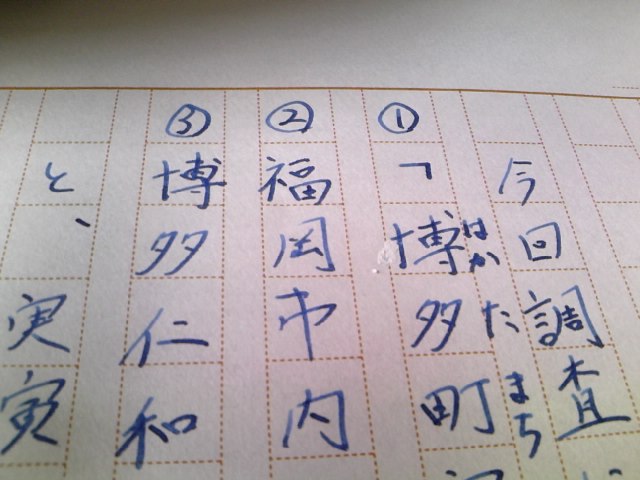 今回調査
①「博多町
はかたまち
②福岡市内
③博多仁和
と、
実寅